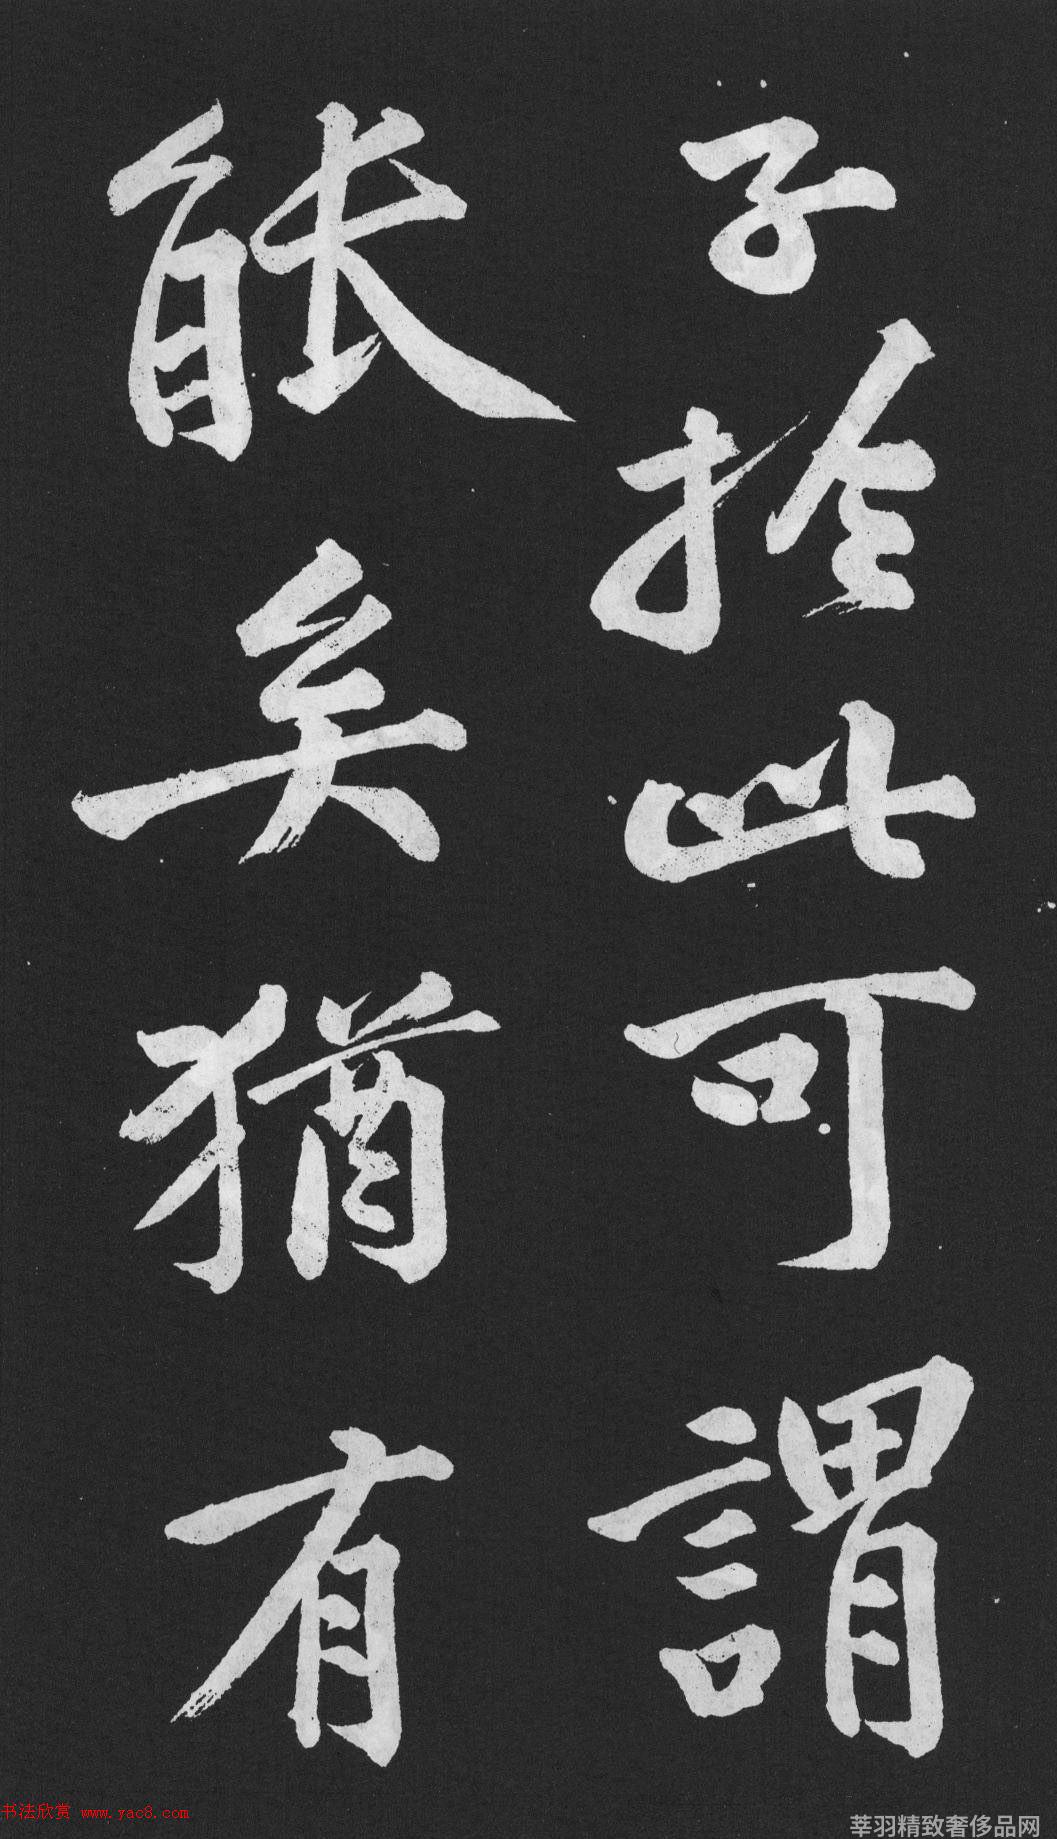 子於此可謂
能矣猶有
书法欣赏 www.yac8.com
莘羽精致奢侈品网